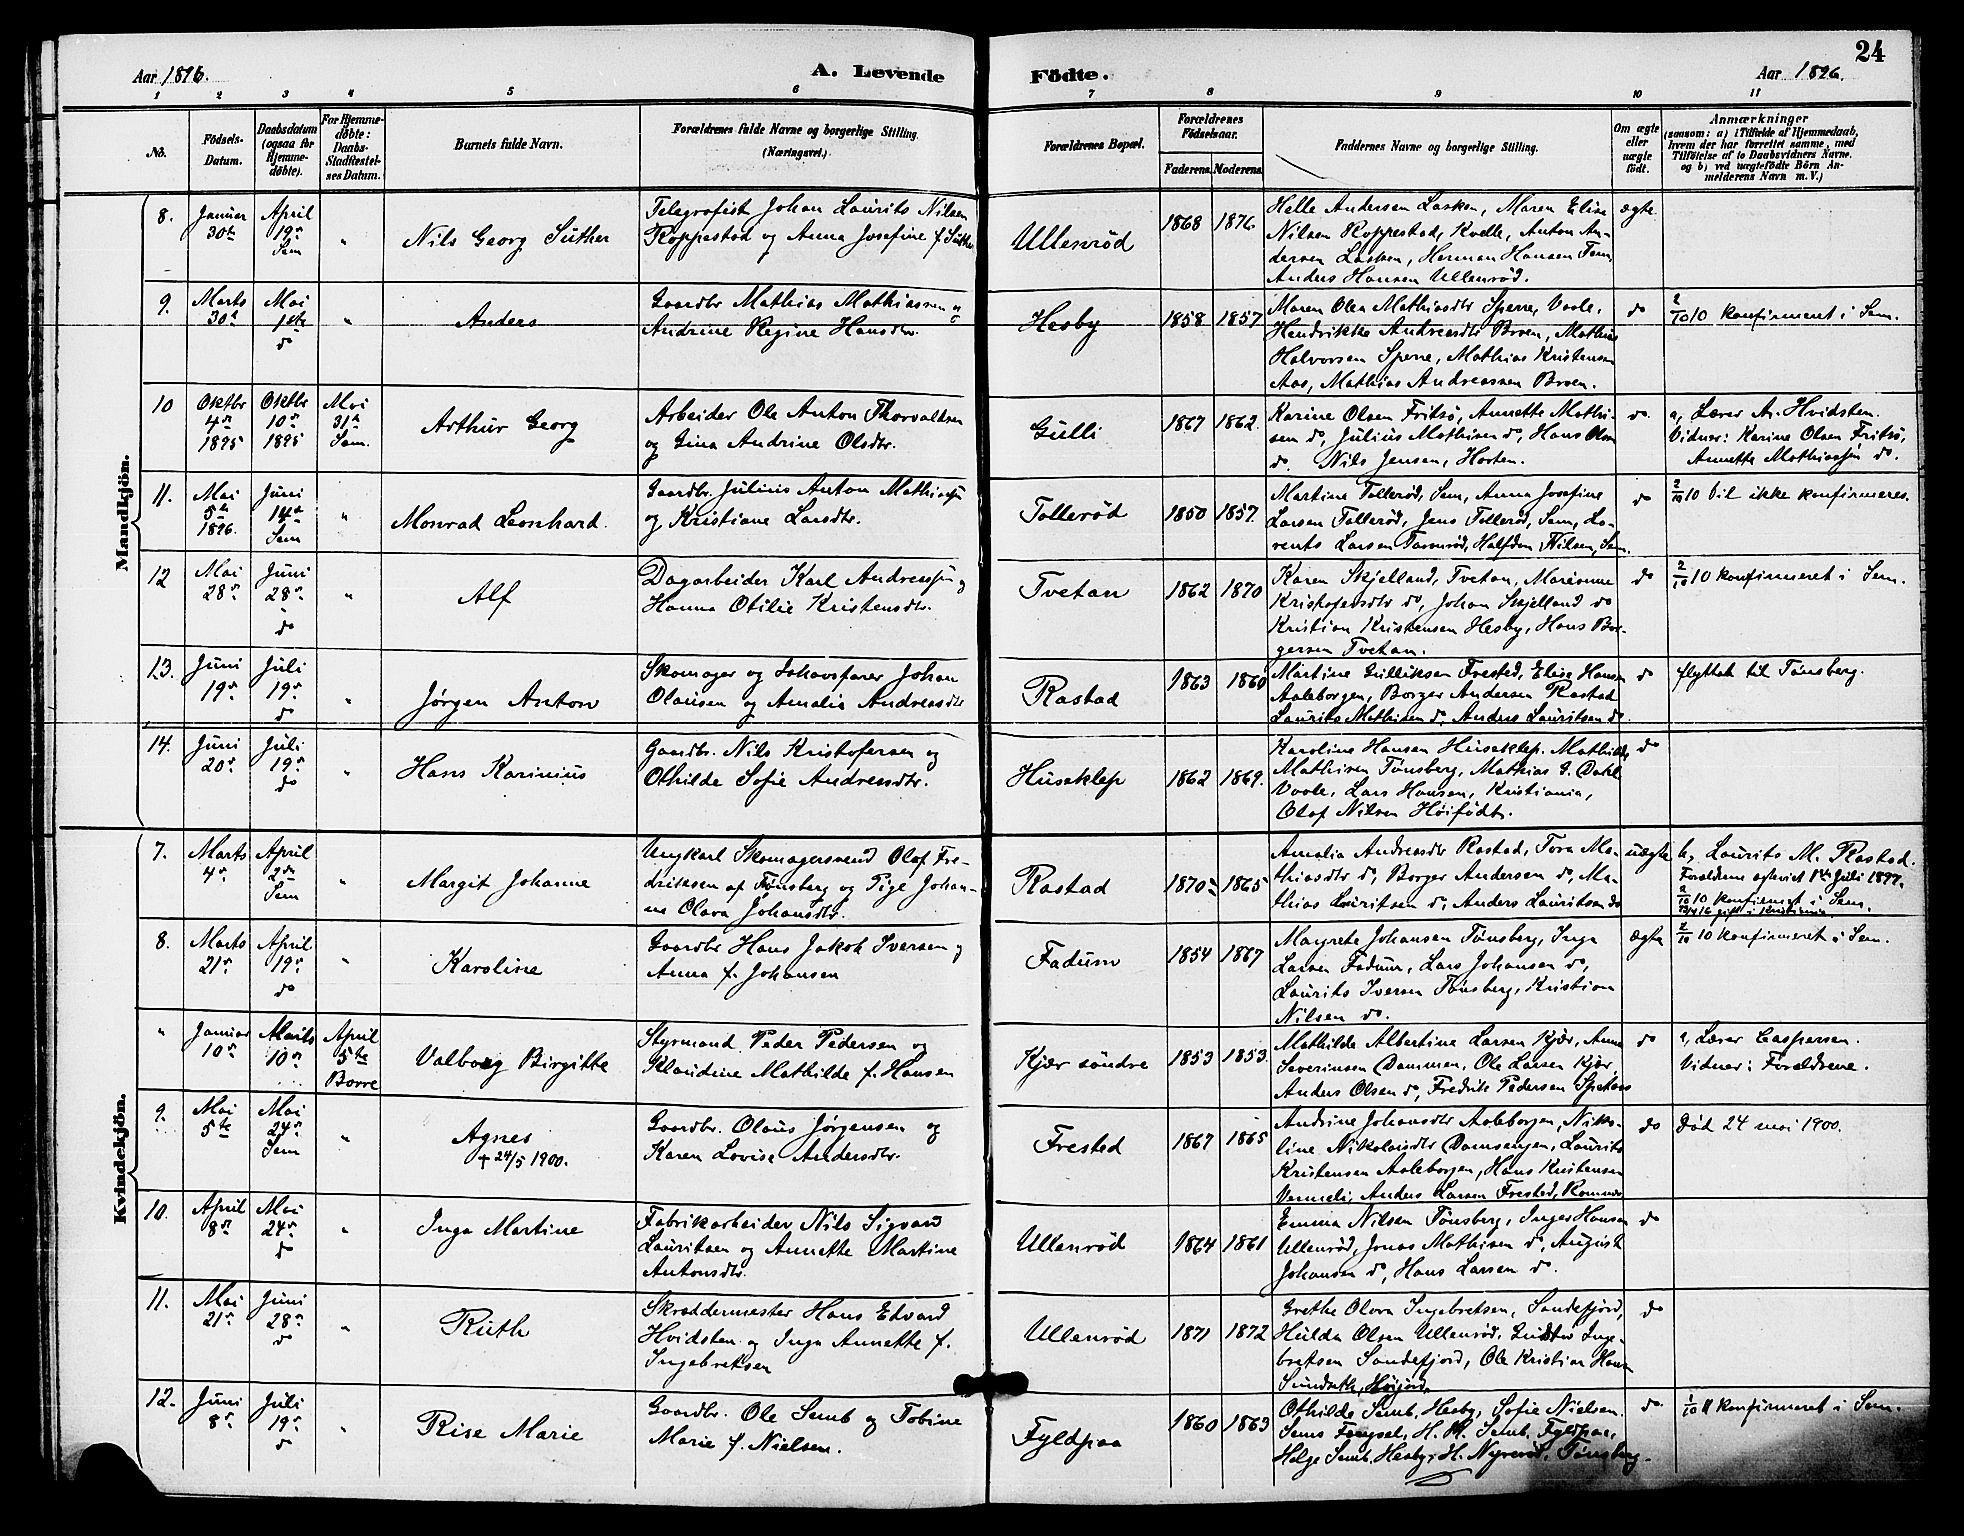 24
Aar 1896.
A. Levende Födte.
Aar 1896.
1 2 3 4 5 6 7 8 9 10 11
No.
Födsels-
Datum.
Daabsdatum
(ogsaa for
Hjemme-
döbte).
For Hjemme-
döbte:
Daabs-
Stadfæstel-
ses Datum.
Barnets fulde Navn.
Forældrenes fulde Navne og borgerlige Stilling.
(Næringsvei.)
Forældrenes Bopæl.
Forældrenes
Födselsaar.
Faderens. Moderens.
Faddernes Navne og borgerlige Stilling.
Om ægte
eller
uægte
födt.
Anmærkninger
(saasom: a) i Tilfælde af Hjemmedaab,
hvem der har forrettet samme, med
Tilföielse af to Daabsvidners Navne.
og b) ved uægtefödte Börn An-
melderens Navn m. V.)
Mandkjön.
8.
Januar
30te
April
19de
Sem
"
Nils Georg Suther
Telegrafist Johan Laurits Nilsen
Roppestad og Anna Josefine f. Suther
Ullenrød
1868 1876
Helle Andersen Lasken, Maren Elise
Nilsen Roppestad, Kvelle, Anton An-
dersen Lasken, Herman Hansen Fem
Anders Hansen Ullenrød.
ægte
9.
Marts
30te
Mai
1ste
do
"
Anders
Gaardbr Mathias Mathiassen og
Andrine Regine Hansdtr.
Hesby
1858 1857
Maren Olea Mathiasdtr Sperre, Vaale,
Hendrikke Andreasdtr Broen, Mathias
Halvorsen Sperre, Mathias Kristensen
Aas, Mathias Andreassen Broen.
do
2/10 10 konfirmeret i Sem.
10
Oktbr
4de
1895
Oktbr
10de
1895
Mai
31te
Sem.
Arthur Georg
Arbeider Ole Anton Thorvaldsen
og Gina Andrine Olsdtr.
Gulli
1867 1862
Karine Olsen Fritsø, Annette Mathi-
sen do, Julius Mathisen do, Hans Olsen
do. Nils Jensen, Horten.
do.
a, Lærer A. Hvidsten.
Vidner: Karine Olsen Fritsø,
Annette Mathiassen do.
11.
Mai
5te
1896.
Juni
14de
Sem
"
Monrad Leonhard.
Gaardbr. Julius Anton Mathiassen
og Kristiane Larsdtr.
Tollerød
1850 1857.
Martine Tollerød, Sem, Anna Josefine
Larsen Tollerød, Jens Tollerød, Sem, Lo-
rents Larsen Tavenrød, Halfdan Nilsen, Sem.
do
2/10 10 Vil ikke konfirmeres.
12
Mai
28de
Juni
28de
do
"
Alf
Dagarbeider Karl Andreassen og
Hanna Otilie Kristensdtr.
Tvetan
1862 1870
Karen Skjelland, Tvetan, Marianne
Kristofersdtr do, Johan Skjelland do
Kristian Kristensen Hesby, Hans Bor-
gersen Tvetan.
do
2/10 10 konfirmeret i Sem.
13.
Juni
19de
Juli
19de
do
"
Jørgen Anton
Skomager og Ishavsfarer Johan
Olausen og Amalie Andreasdtr
Rastad
1863 1860
Martine Gulliksen Frested, Elise Hansen
Aaleborgen, Borger Andersen Rastad
Laurits Mathisen do, Anders Lauritsen do.
do
flyttet til Tønsberg.
14.
Juni
20de
Juli
19de
do
"
Hans Karinius
Gaardbr. Nils Kristofersen og
Othilde Sofie Andreasdtr.
Huseklep
1862 1869.
Karoline Hansen Huseklep, Mathilde
Mathisen Tønsberg, Mathias G. Dahl
Vaale, Lars Hansen, Kristiania,
Olaf Nilsen Høifødt.
do
Kvindekjön.
7.
Marts
4de
April
2den
Sem
"
Margit Johanne
Ungkarl Skomagersvend Olaf Fre-
driksen af Tønsberg og Pige Johan-
ne Olava Johansdtr.
Rastad
1870 1865
Amalia Andreasdtr Rastad, Tora Ma-
thiasdtr do, Borger Andersen do, Ma-
thias Lauritsen do, Anders Lauritsen do
uægte
b, Laurits M. Rastad.
Forældrene ægteviet 1ste Juli 1897.
2/10 10 konfirmeret i Sem.
gift i Kristiania
8.
Marts
21de
April
19de
do
"
Karoline
Gaardbr Hans Jakob Iversen og
Anna f. Johansen
Fadum
1854 1867
Margrete Johansen Tønsberg, Inga
Larsen Fadum, Lars Johansen do,
Laurits Iversen Tønsberg, Kristian
Nilsen do.
ægte
2/10 10 konfirmeret i Sem.
"
Januar
10de
Marts
10de
April
5te
Borre
Valborg Birgitte
Styrmand Peder Pedersen og
Klaudine Mathilde f. Hansen
Kjær søndre
1853 1853.
Mathilde Albertine Larsen Kjær, Anne
Severinsen Dammen, Ole Larsen Kjær,
Anders Olsen do, Fredrik Pedersen
do
a, Lærer Caspersen.
Vidner: Forældrene.
9.
Mai
5te
Mai
24de
Sem
"
Agnes
† 24/5 1900.
Gaardbr. Olaus Jørgensen og
Karen Lovise Andersdtr.
Frested
1867 1865
Andrine Johansdtr Aaleborgen, Niko-
line Nikolaisdtr Damsengen, Laurits
Kristensen Aaleborgen, Hans Kristensen
Vermeli, Anders Larsen Frested, Ramnes
do
Død 24 mai 1900.
10.
April
8de
Mai
24de
do
"
Inga Martine
Fabrikarbeider Nils Sigvard
Lauritsen og Annette Martine
Antonsdtr.
Ullenrød
1864 1861
Emma Nilsen Tønsberg, Inger Hansen
Ullenrød, Jonas Mathisen do, August
Johansen do, Hans Larsen do.
do
11.
Mai
21de
Juni
28de
do
"
Ruth
Skræddermester Hans Edvard
Hvidsten og Inga Annette f.
Ingebretsen
Ullenrød
1871 1872
Grethe Olava Ingebretsen, Sandefjord,
Hulda Olsen Ullenrød, Gustav Inge-
bretsen Sandefjord, Ole Kristian Hansen
Sundseth, Høijord.
do
12.
Juni
8de
Juli
19de
do
"
Rise Marie
Gaardbr. Ole Semb og Tobine
Marie f. Nielsen.
Fyldpaa
1860 1863
Othilde Semb, Hesby, Sofie Nielsen
Jens Foynsel, H. M. Semb, Fyldpaa,
Helge Semb, Hesby, H. Nyrerød, Tønsberg.
do.
1/10 11 konfirmeret i Sem.